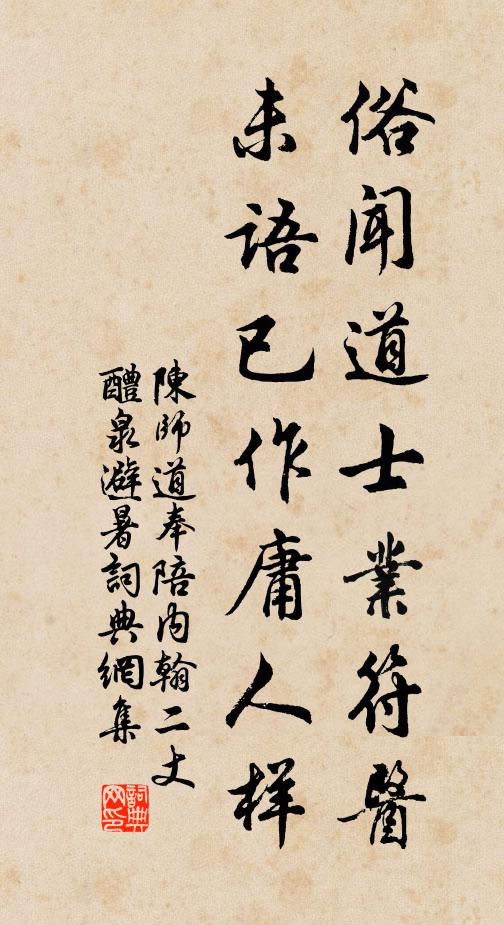 俗聞道士業符醫
未語已作庸人样
陳師道奉陪内翰二丈
醴泉避暑詞典網集
詞典网印